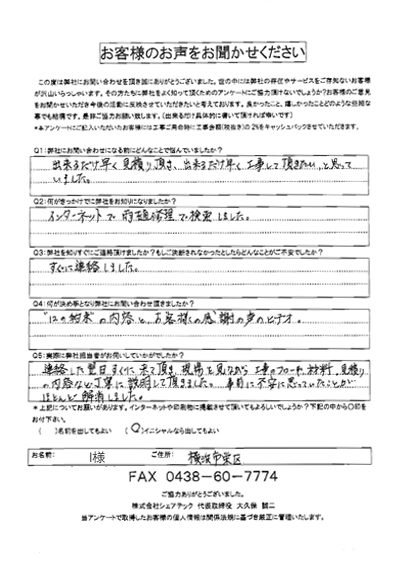 お客様のお声をお聞かせください
この度は弊社にお問い合わせを頂き誠にありがとうございました。世の中には弊社の存在やサービスをご存知ないお客様
が沢山いらっしゃいます。その方たちに弊社をよく知って頂くためのアンケートにご協力頂けないでしょうか?お客様のご意見
をお聞かせいただき今後の活動に反映させていただきたいと考えております。良かったこと、嬉しかったことどのような些細な
事でも結構です。是非ご協力お願い致します。(出来るだけ具体的に書いて頂ければ幸いです)
*本アンケートにご記入いただいたお客様には工事ご用命時に工事金額(税抜き)の2%をキャッシュバックさせていただきます。
Q1:弊社にお問い合わせになる前にどんなことで悩んでいましたか?
出来るだけ早く見積り頂き、出来るだけ早く工事して頂きたい、と思って
いました。
Q2:何がきっかけでに弊社をお知りになりましたか?
インターネットで 修理で検索しました。
Q3:弊社を知りすぐにご連絡頂けましたか?もしご決断されなかったとしたらどんなことがご不安でしたか?
すぐに連絡しました。
Q4:何が決め手となり弊社にお問い合わせ頂きましたか?
"12の約束"の内容と、お客様の感謝の声のビデオ。
Q5:実際に弊社担当者がお伺いしていかがでしたか?
連絡した翌日すぐに来て頂き、現場を見ながら工事のフロー、材料、見積り
の内容など丁寧に説明して頂きました。事前に不安に思っていたことが
ほとんど解消しました。
*上記についてお願いがあります。インターネットや印刷物に掲載させて頂いてもよろしいでしょうか?下記の中から〇印を
お付下さい。
( )名前を出してもよい (〇)イニシャルなら出してもよい
お名前: I様 ご住所: 横浜市栄区
FAX 0438-60-7774
ご協力ありがとうございました。
株式会社シェアテック 代表取締役 大久保 誠二
当アンケートで取得したお客様の個人情報は関係法規に基づき厳正に管理いたします。